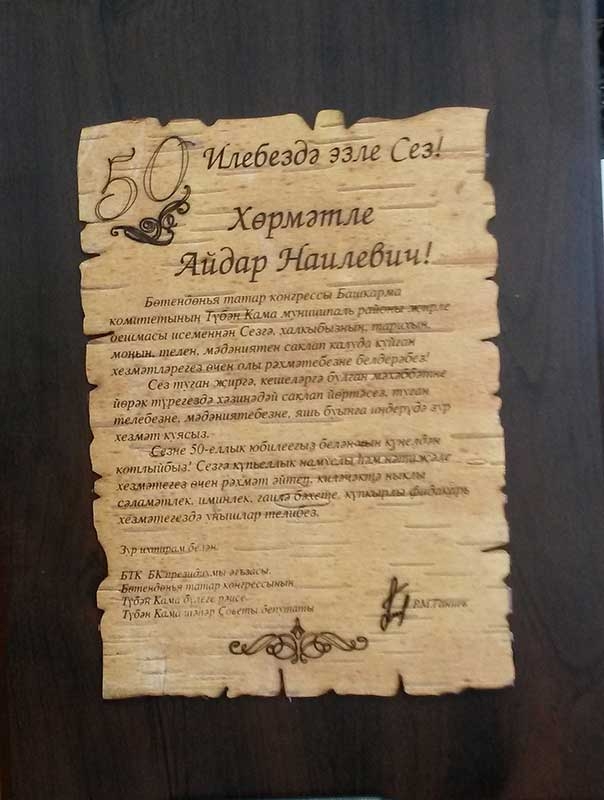 50
Илебездә эзле Сез!
Хөрмәтле
Айдар Наилевич!
Бөтендөнья татар конгрессы Башкарма
комитетының Түбән Кама муниципаль районы җирле
оешмасы исеменнән Сезгә, халкыбызның, тарихын,
моңын, телен, мәдәниятен саклап калуда куйган
хезмәтләрегез өчен олы рәхмәтебезне белдерәбез!
Сез туган җиргә, кешеләргә булган мәхәббәтне
йөрәк түрегездә хәзинәдәй саклап йөртәсез, туган
телебезне, мәдәниятебезне, яшь буынга индерүдә зур
хезмәт куясыз.
Сезне 50-еллык юбилеегыз белән чын күңелдән
котлыйбыз! Сезгә күпьеллык намуслы һәм нәтиҗәле
хезмәтегез өчен рәхмәт әйтеп, киләчәктә ныклы
сәламәтлек, иминлек, гаилә бәхете, күпкырлы фидакарь
хезмәтегездә уңышлар телибез.
Зур ихтирам белән,
БТК БК президиумы әгъзасы,
Бөтендөнья татар конгрессының
Түбән Кама бүлеге рәисе
Түбән Кама шәһәр Советы депутаты
Р.М.